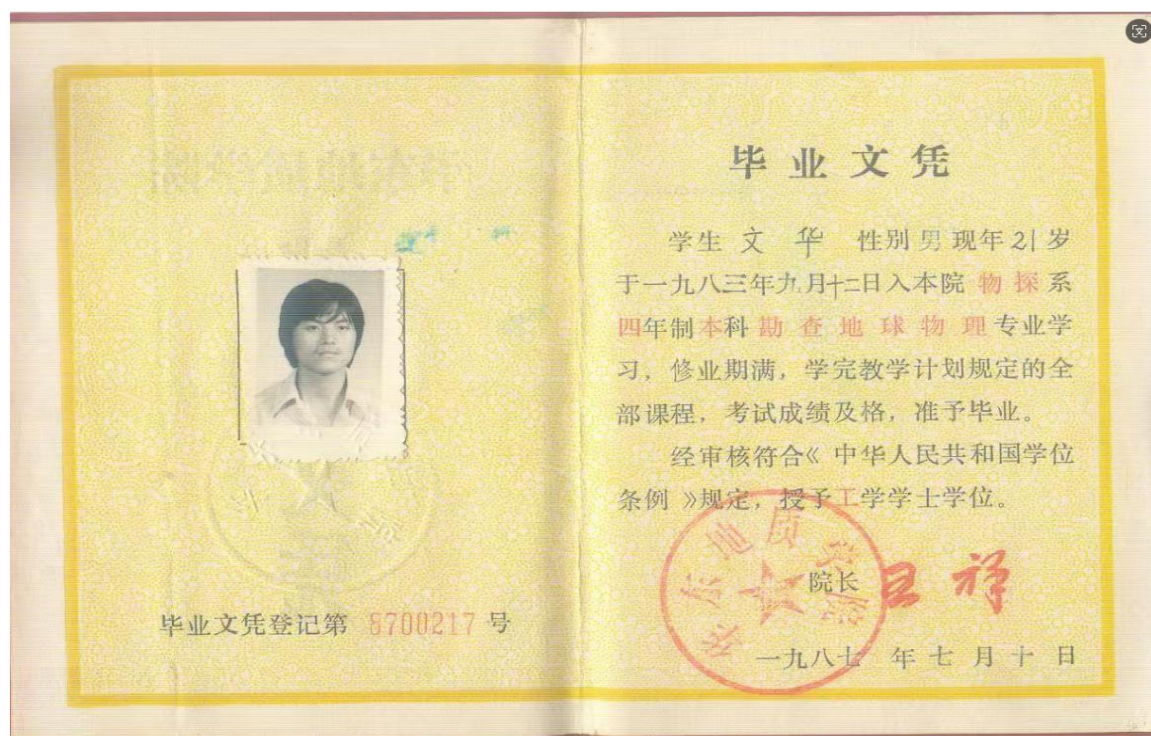 毕业文凭登记第 8700217 号
毕业文凭
学生 文 华 性别 男 现年 21 岁
于一九八三年九月十二日入本院 物探 系
四年制本科 勘查地球物理 专业学
习，修业期满，学完教学计划规定的全
部课程，考试成绩及格，准予毕业。
经审核符合《中华人民共和国学位
条例》规定，授予工学学士学位。
华东地质学院
院长
一九八七 年 七 月 十 日